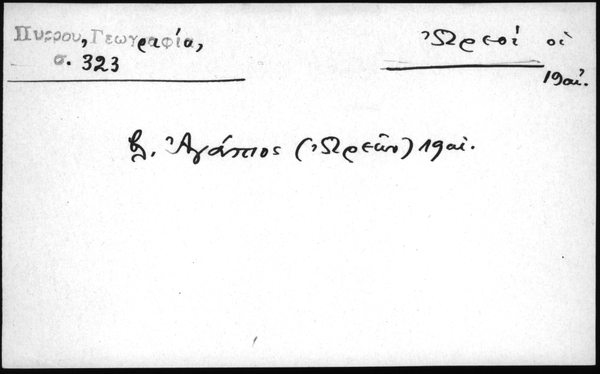 Πύρρου, Γεωγραφία,
σ. 323
Ὠρεοί οἱ
19αἰ.
βλ. Ἀγάπιος (Ὠρεῶν) 19αἰ.